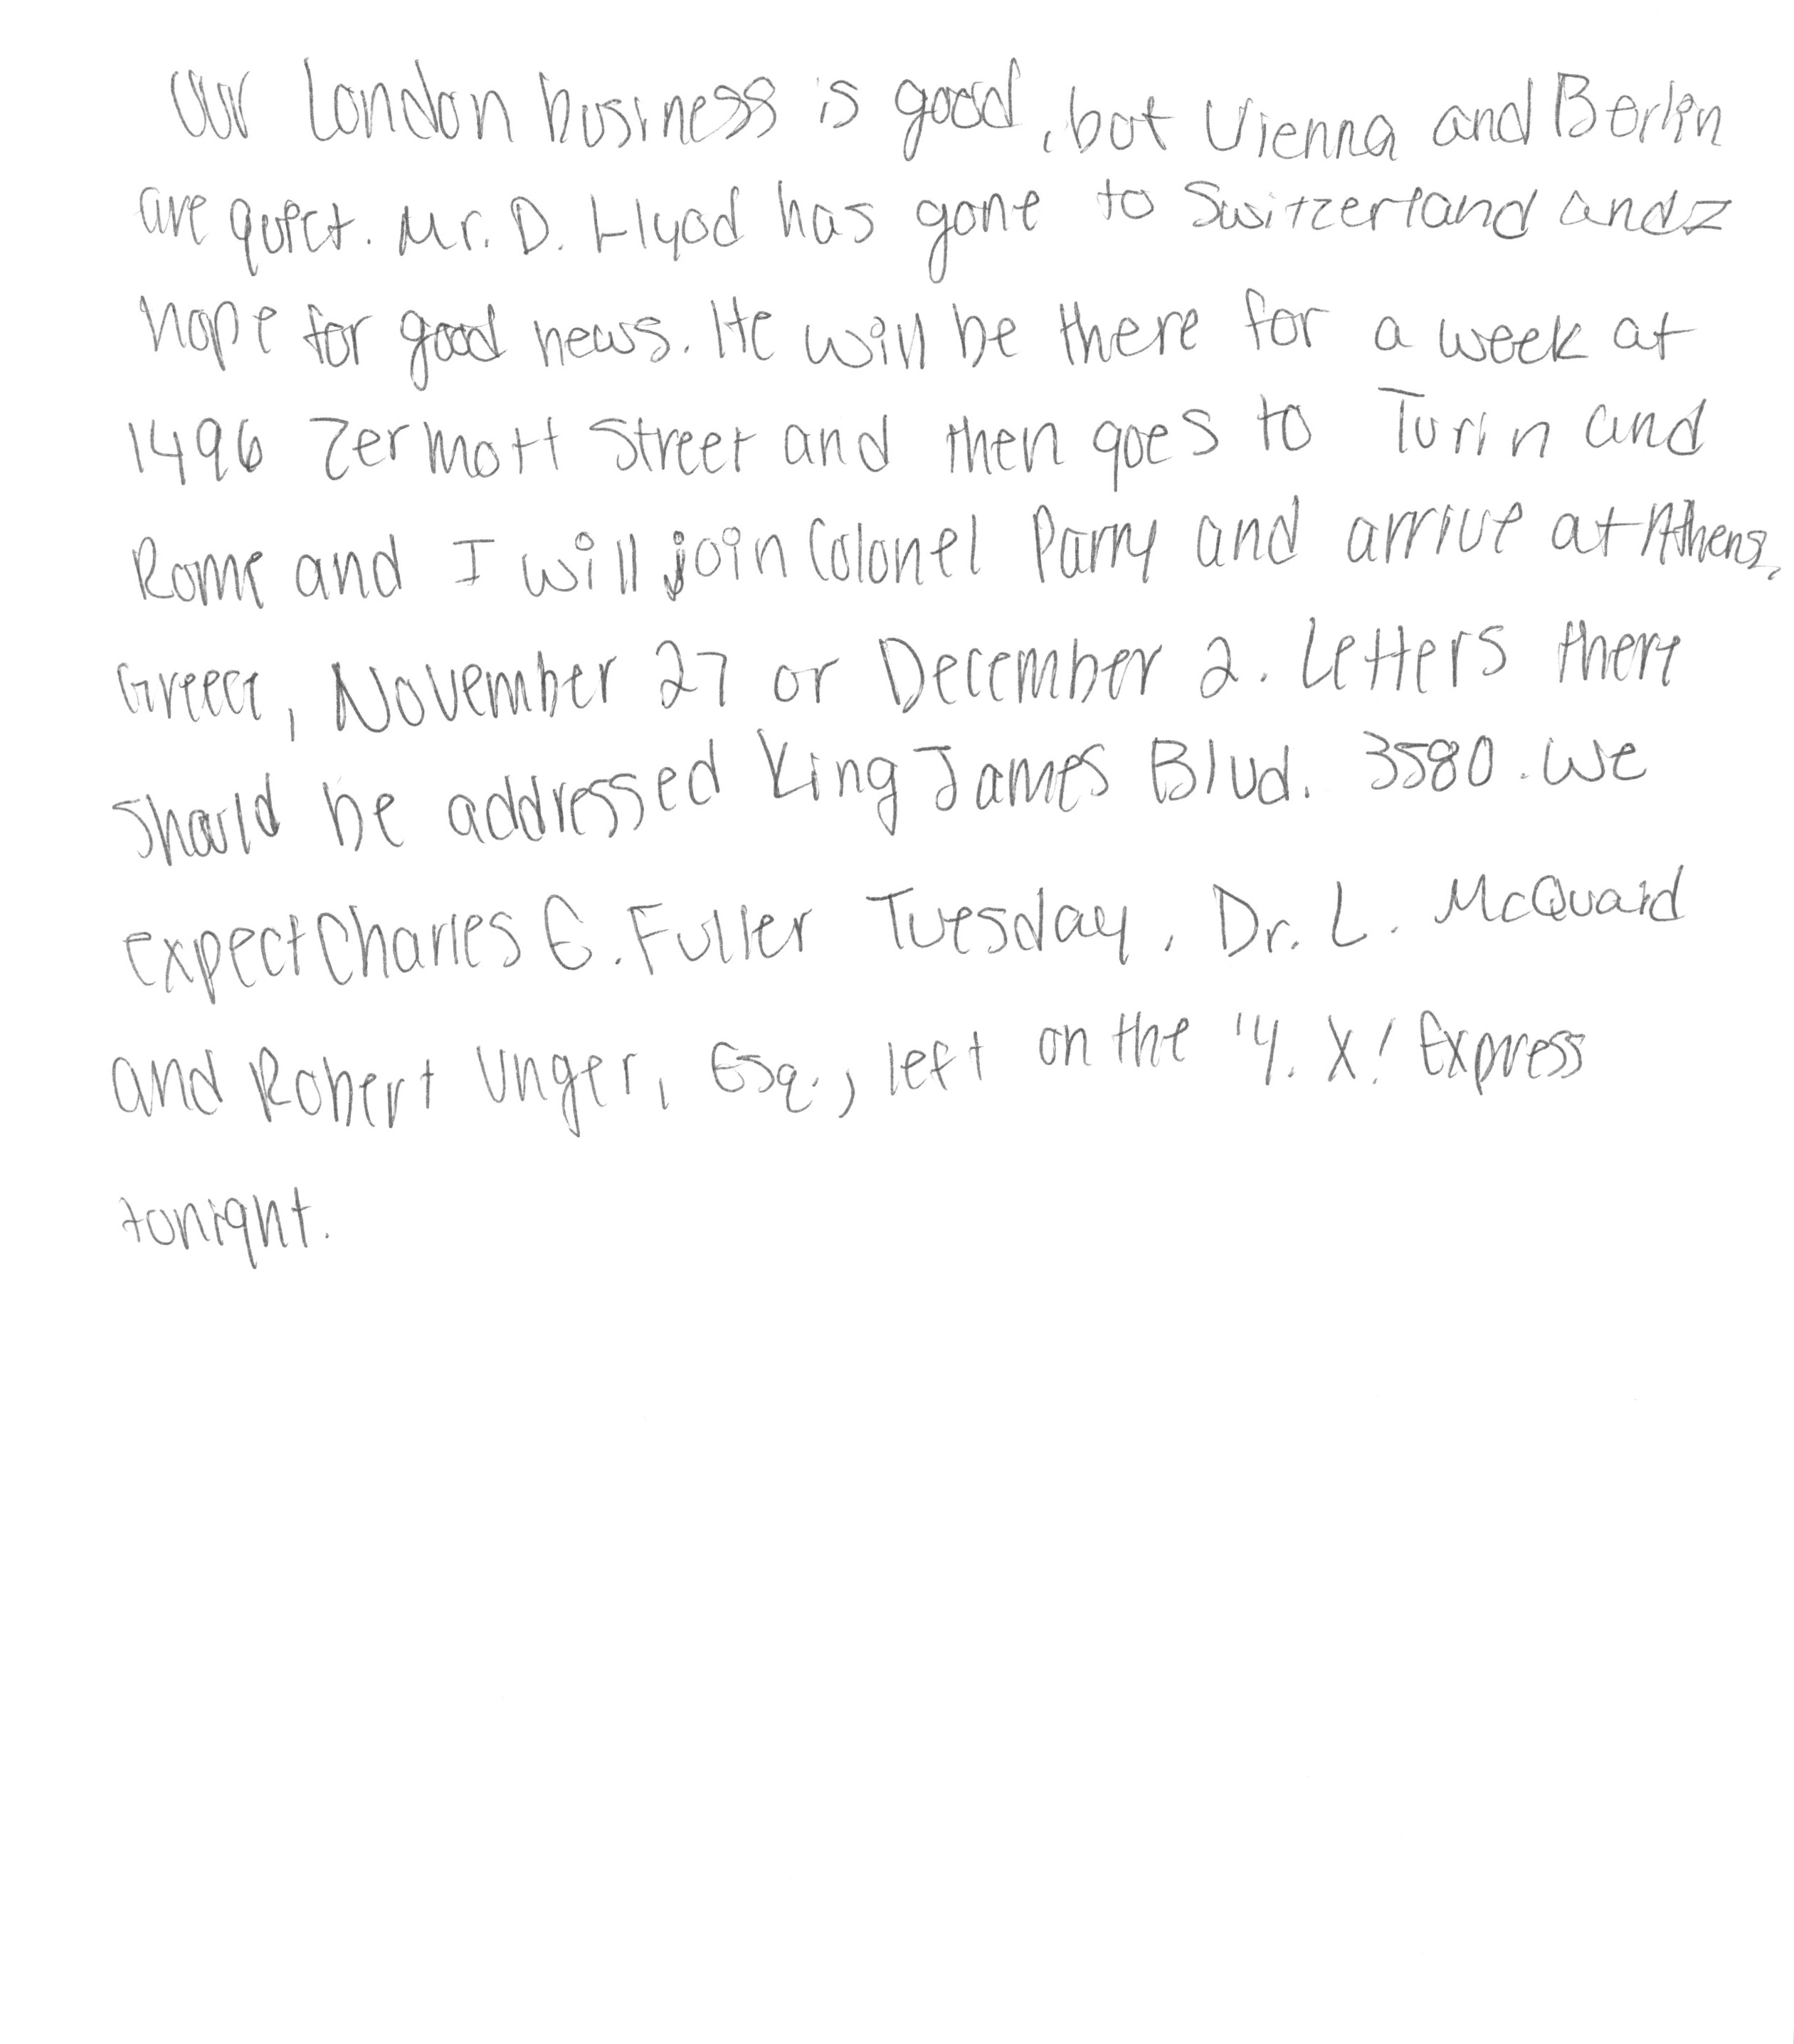 Our London business is good, but Vienna and Berlin
are quiet. Mr. D. Llyod has gone to Switzerland and I
hope for good news. He will be there for a week at
1496 Zermott Street and then goes to Turin and
Rome and I will join Colonel Parry and arrive at Athens,
Greece, November 27 or December 2. Letters there
should be addressed King James Blvd. 3580. We
expect Charles E. Fuller Tuesday. Dr. L. McQuaid
and Robert Unger, Esq., left on the 'Y. X.' Express
tonight.